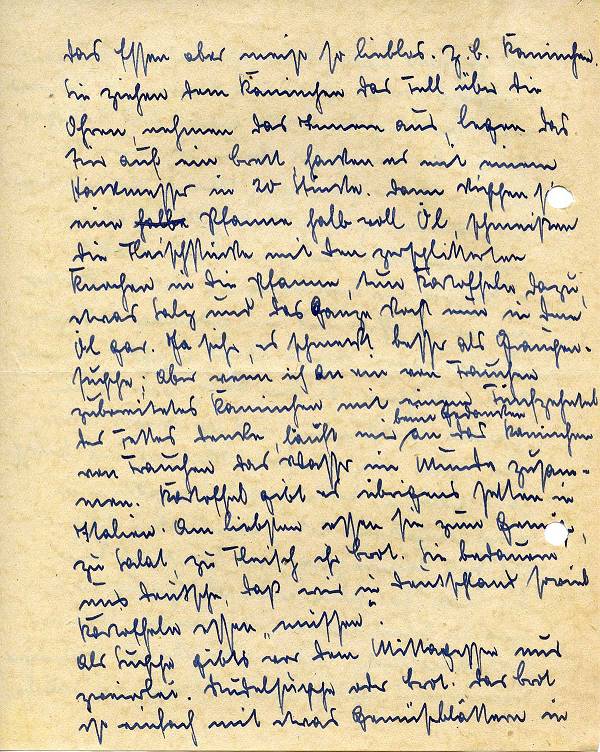 das Essen aber meist so lieblos. z. b. Kaninchen.
Sie ziehen dem Kaninchen das Fell über die
Ohren, nehmen das Innere aus, legen das
Tier auf ein brett, hacken es mit einem
Hackmesser in 20 Stücke. Dann kippen sie
eine Pfanne halb voll Öl, schmeißen
die Fleischstücke mit den zersplitterten
Knochen in die Pfanne, tun Kartoffeln dazu,
etwas Salz und das Ganze kocht nun in dem
Öl gar. Ja sicher, es schmeckt besser als Graupen-
suppe; aber wenn ich an ein von Frauchen
zubereitetes Kaninchen mit einem Fünfzehntel
des Fettes denke, läuft mir beim Gedanken an das Kaninchen
von Frauchen das Wasser im Munde zusam-
men. Kartoffel gibt es übrigens selten in
Italien. Am liebsten essen sie zum Gemüse,
zu Salat, zu Fleisch ihr brot. Sie bedauern
uns Deutsche, daß wir in Deutschland soviel
Kartoffeln essen „müssen".
Als Suppe gibts vor dem Mittagessen nur
zweierlei. Nudelsuppe oder brot. Das brot
ist einfach mit etwas Gemüseblättern in